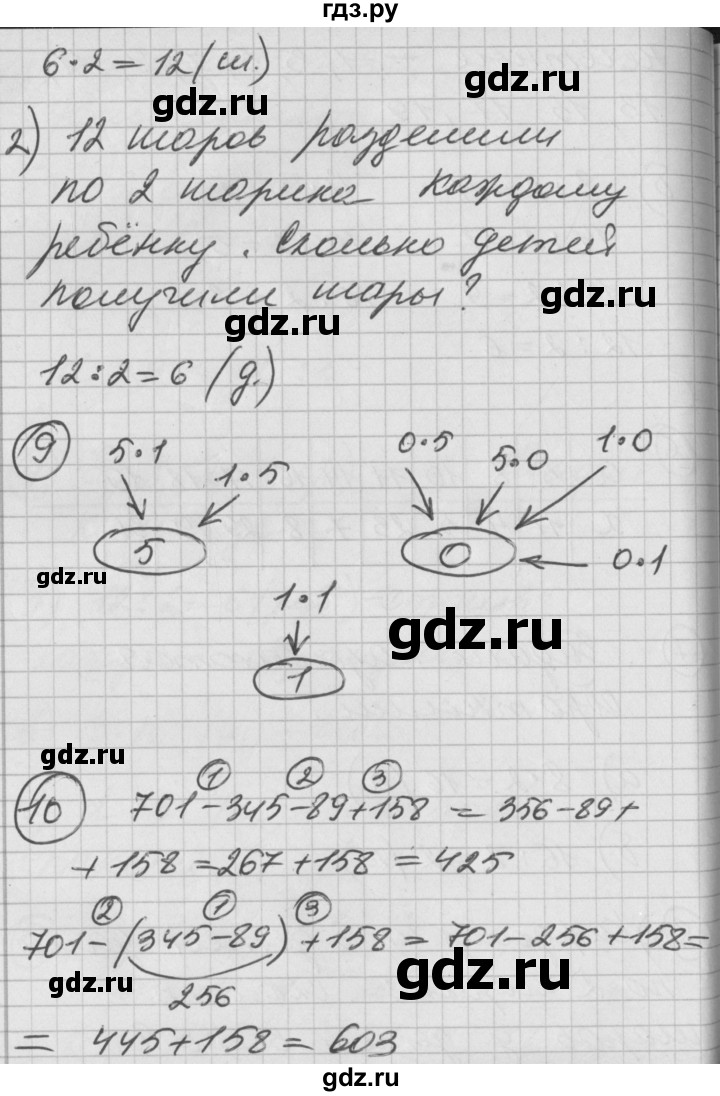 гдз.ру
6·2=12(ш.)
gdz.ru
gdz.ru
2) 12 шаров разделили
по 2 шарика каждому
ребёнку. Сколько детей
gdz.ru
получили шары?
gdz.ru
12:2=6 (д.)
9
5·1
1·5
0·5
5·0
1·0
5
0
0·1
gdz.ru
1·1
gdz.ru
1
gdz.ru
1 2 3
10
701-345-89+158 = 356-89+
+158=267+158=425
gdz.ru
2 1 3
701-(345-89)+158=701-256+158=
gdz.ru
gdz.ru
256
= 445+158=603
gdz.ru